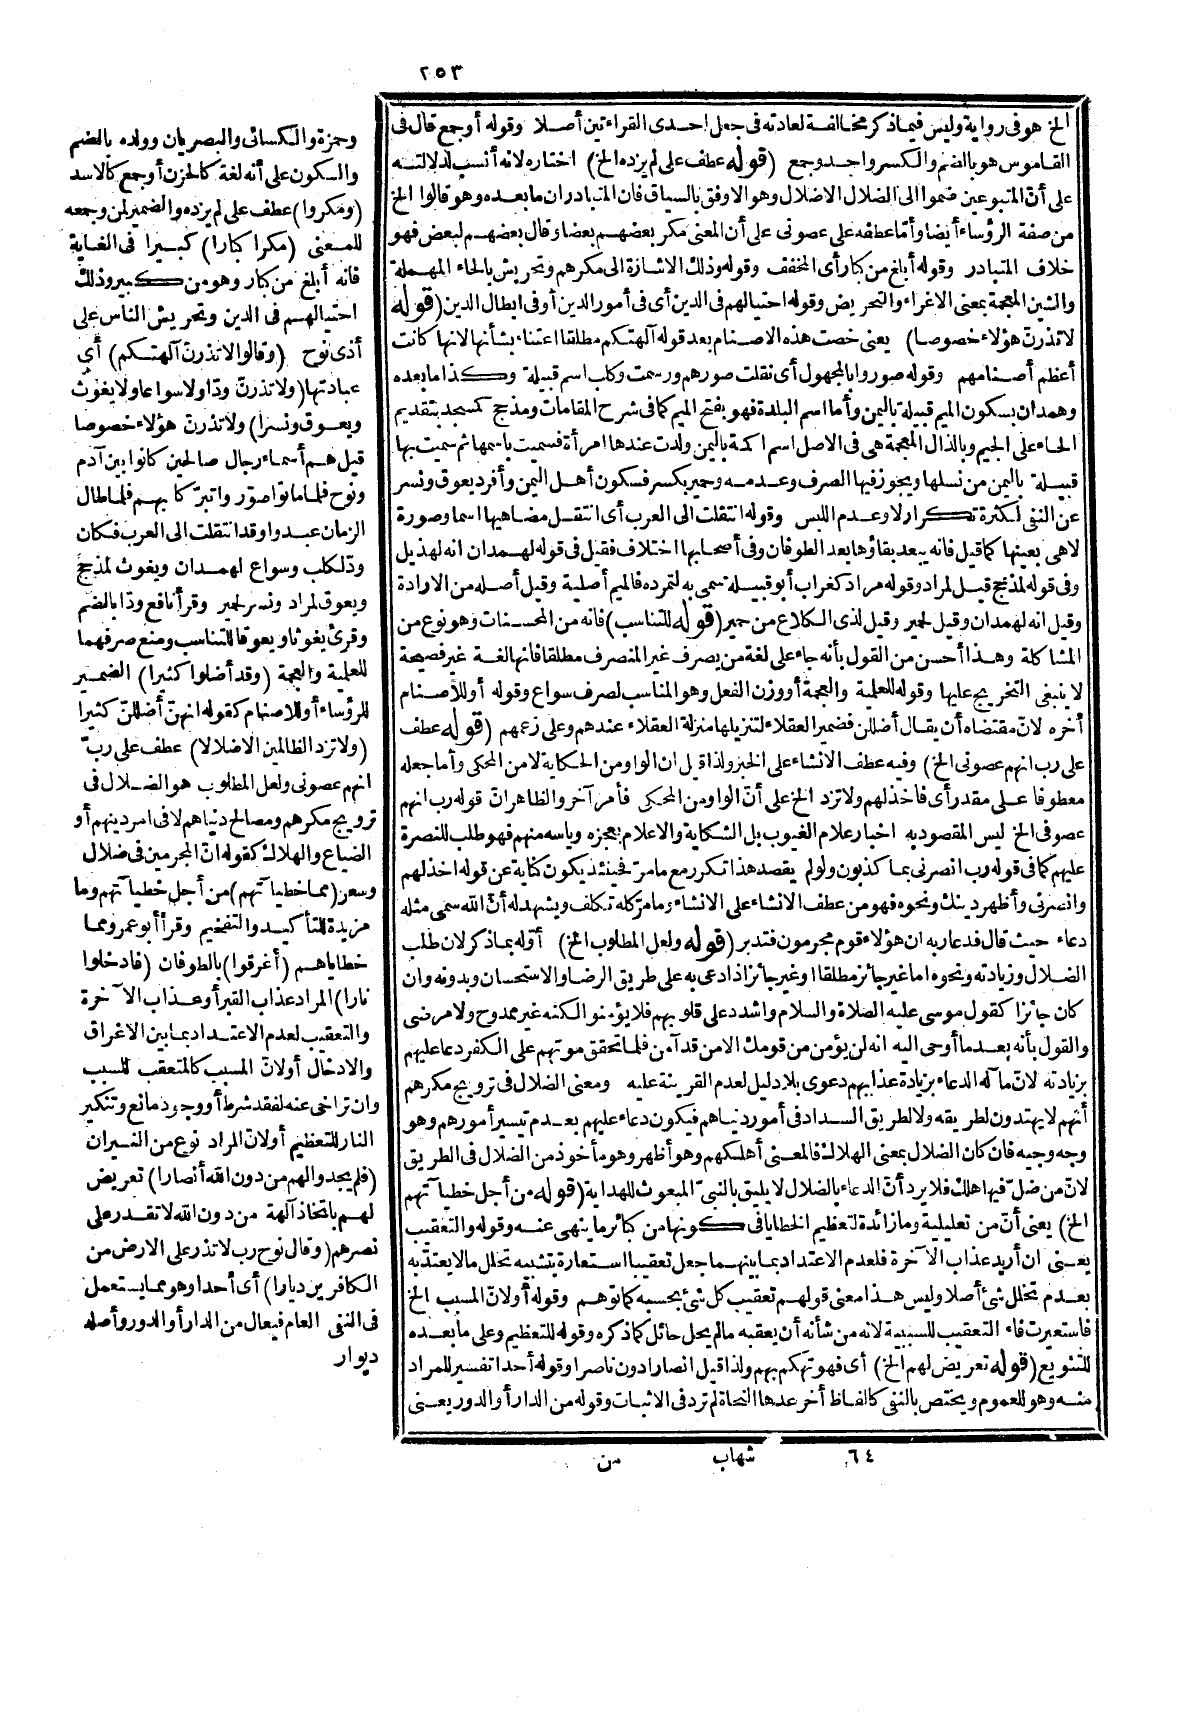 ٢٥٣
الخ هو فى رواية وليس فيما ذكر مخالفة لعادته فى جعل احدى القراءتين أصلا وقوله أو جمع قال فى
القاموس هو بالضم والكسر واحد وجمع (قوله عطف على لم يزده الخ) اختاره لانه أنسب لدلالته
على أنّ المتبوعين ضموا الى الضلال الاضلال وهو الاوفق بالسياق فان المتبادر ان ما بعده وهو قالوا الخ
من صفة الرؤساء أيضا وأمّا عطفه على عصونى على أن المعنى مكر بعضهم بعضا وقال بعضهم لبعض فهو
خلاف المتبادر وقوله أبلغ من كبار أى المخفف وقوله وذلك الاشارة الى مكرهم وتحريش بالحاء المهملة
والشين المعجمة بمعنى الاغراء والتحريض وقوله احتيالهم فى الدين أى فى أمور الدين أو فى ابطال الدين (قوله
لا تذرنّ هؤلاء خصوصا) يعنى خصت هذه الاصنام بعد قوله آلهتكم مطلقا اعتناء بشأنها لانها كانت
أعظم أصنامهم وقوله صوروا بالمجهول أى نقلت صورهم ورسمت وكلب اسم قبيلة وكذا ما بعده
وهمدان بسكون الميم قبيلة باليمن وأما اسم البلدة فهو بفتح الميم كما فى شرح المقامات ومذحج كمسجد بتقديم
الحاء على الجيم وبالذال المعجمة هى فى الاصل اسم اكمة باليمن ولدت عندها امرأة فسميت باسمها ثم سميت بها
قبيلة باليمن من نسلها ويجوز فيها الصرف وعدمه وحمير بكسر فسكون أهل اليمن وأفرد يعوق ونسر
عن النفى لكثرة تكرار لا وعدم اللبس وقوله انتقلت الى العرب أى انتقل مضاهيها اسما وصورة
لا هى بعينها كما قيل فانه يبعد بقاؤها بعد الطوفان وفى أصحابها اختلاف فقيل فى قوله لهمدان انه لهذيل
وفى قوله لمذحج قيل لمراد وقوله مراد كغراب أبو قبيلة سمى به لتمرده فالميم أصلية وقيل أصله من الارادة
وقيل انه لهمدان وقيل لحمير وقيل لذى الكلاع من حمير (قوله للتناسب) فانه من المحسنات وهو نوع من
المشاكلة وهذا أحسن من القول بأنه جاء على لغة من يصرف غير المنصرف مطلقا فانها لغة غير فصيحة
لا ينبغى التخريج عليها وقوله للعلمية والعجمة أو وزن الفعل وهو المناسب لصرف سواع وقوله أو للأصنام
أخره لانّ مقتضاه أن يقال أضللن فضمير العقلاء لتنزيلها منزلة العقلاء عندهم وعلى زعمهم (قوله عطف
على رب انهم عصونى الخ) وفيه عطف الانشاء على الخبر ولذا قيل ان الواو من الحكاية لا من المحكى وأما جعله
معطوفا على مقدر أى فاخذلهم ولا تزد الخ على أنّ الواو من المحكى فأمر آخر والظاهر انّ قوله رب انهم
عصونى الخ ليس المقصود به اخبار علام الغيوب بل الشكاية والاعلام بعجزه ويأسه منهم فهو طلب للنصرة
عليهم كما فى قوله رب انصرنى بما كذبون ولو لم يقصد هذا تكرر مع مامرّ فحينئذ يكون كناية عن قوله اخذلهم
وانصرنى وأظهر دينك ونحوه فهو من عطف الانشاء على الانشاء ومامرّ كله تكلف ويشهد له أنّ الله سمى مثله
دعاء حيث قال فدعا ربه ان هؤلاء قوم مجرمون فتدبر (قوله ولعل المطلوب الخ) أوّله بما ذكر لان طلب
الضلال وزيادته ونحوه اما غير جائز مطلقا او غير جائز اذا دعى به على طريق الرضا والاستحسان وبدونه وان
كان جائزا كقول موسى عليه الصلاة والسلام واشدد على قلوبهم فلا يؤمنوا لكنه غير ممدوح ولا مرضى
والقول بأنه بعدما أوحى اليه انه لن يؤمن من قومك الا من قد آمن فلما تحقق موتهم على الكفر دعا عليهم
بزيادته لانّ مآ له الدعاء بزيادة عذابهم دعوى بلا دليل لعدم القرينة عليه ومعنى الضلال فى ترويج مكرهم
أنهم لا يهتدون لطريقه ولا لطريق السداد فى أمور دنياهم فيكون دعاء عليهم بعدم تيسير أمورهم وهو
وجه وجيه فان كان الضلال بمعنى الهلاك فالمعنى أهلكهم وهو أظهر وهو مأخوذ من الضلال فى الطريق
لانّ من ضلّ فيها هلك فلا يرد أنّ الدعاء بالضلال لا يليق بالنبىّ المبعوث للهداية (قوله من أجل خطيآتهم
الخ) يعنى أنّ من تعليلية وما زائدة لتعظيم الخطايا فى كونها من كبائر ما ينهى عنه وقوله والتعقيب
يعنى ان أريد عذاب الآخرة فلعدم الاعتداد بما بينهما جعل تعقيبا استعارة بتشبيه تخلل ما لا يعتدّ به
بعدم تخلل شئ أصلا وليس هذا معنى قولهم تعقيب كل شئ بحسبه كما توهم وقوله أو لانّ المسبب الخ
فاستعيرت فاء التعقيب للسببية لانه من شأنه أن يعقبه مالم يحل حائل كما ذكره وقوله للتعظيم وعلى ما بعده
للتنويع (قوله تعريض لهم الخ) أى فهو تهكم بهم ولذا قيل انصارا دون ناصرا وقوله أحدا تفسير للمراد
منه وهو للعموم ويختص بالنفى كألفاظ أخر عدها النحاة لم ترد فى الاثبات وقوله من الدار أو الدور يعنى
٦٤ شهاب من
وحمزة والكسائى والبصريان وولده بالضم
والسكون على أنه لغة كالحزن أو جمع كالاسد
(ومكروا) عطف على لم يزده والضمير لمن وجمعه
للمعنى (مكرا كبارا) كبيرا فى الغاية
فانه أبلغ من كبار وهو من كبير وذلك
احتيالهم فى الدين وتحريش الناس على
أذى نوح (وقالوا لا تذرنّ آلهتكم) أى
عبادتها (ولا تذرنّ ودّا ولا سواعا ولا يغوث
ويعوق ونسرا) ولا تذرنّ هؤلاء خصوصا
قيل هم أسماء رجال صالحين كانوا بين آدم
ونوح فلما ماتوا صوّروا تبرّكا بهم فلما طال
الزمان عبدوا وقد انتقلت الى العرب فكان
ودّ لكلب وسواع لهمدان ويغوث لمذحج
ويعوق لمراد ونسر لحمير وقرأ نافع ودّا بالضم
وقرئ يغوثا ويعوقا للتناسب ومنع صرفهما
للعلمية والعجمة (وقد أضلوا كثيرا) الضمير
للرؤساء أو للاصنام كقوله انهنّ أضللن كثيرا
(ولا تزد الظالمين الاضلالا) عطف على ربّ
انهم عصونى ولعل المطلوب هو الضلال فى
ترويج مكرهم ومصالح دنياهم لا فى امر دينهم أو
الضياع والهلاك كقوله انّ المجرمين فى ضلال
وسعر (مما خطيآتهم) من أجل خطيآتهم وما
مزيدة للتأكيد والتفخيم وقرأ أبو عمرو مما
خطاياهم (أغرقوا) بالطوفان (فادخلوا
نارا) المراد عذاب القبر أو عذاب الآخرة
والتعقيب لعدم الاعتداد بما بين الاغراق
والادخال أو لانّ المسبب كالمتعقب للسبب
وان تراخى عنه لفقد شرط أو وجود مانع وتنكير
النار للتعظيم أو لانّ المراد نوع من النيران
(فلم يجدوا لهم من دون الله أنصارا) تعريض
لهم باتخاذ آلهة من دون الله لا تقدر على
نصرهم (وقال نوح رب لا تذر على الارض من
الكافرين ديارا) أى أحدا وهو مما يستعمل
فى النفى العام فيعال من الدار أو الدور وأصله
ديوار